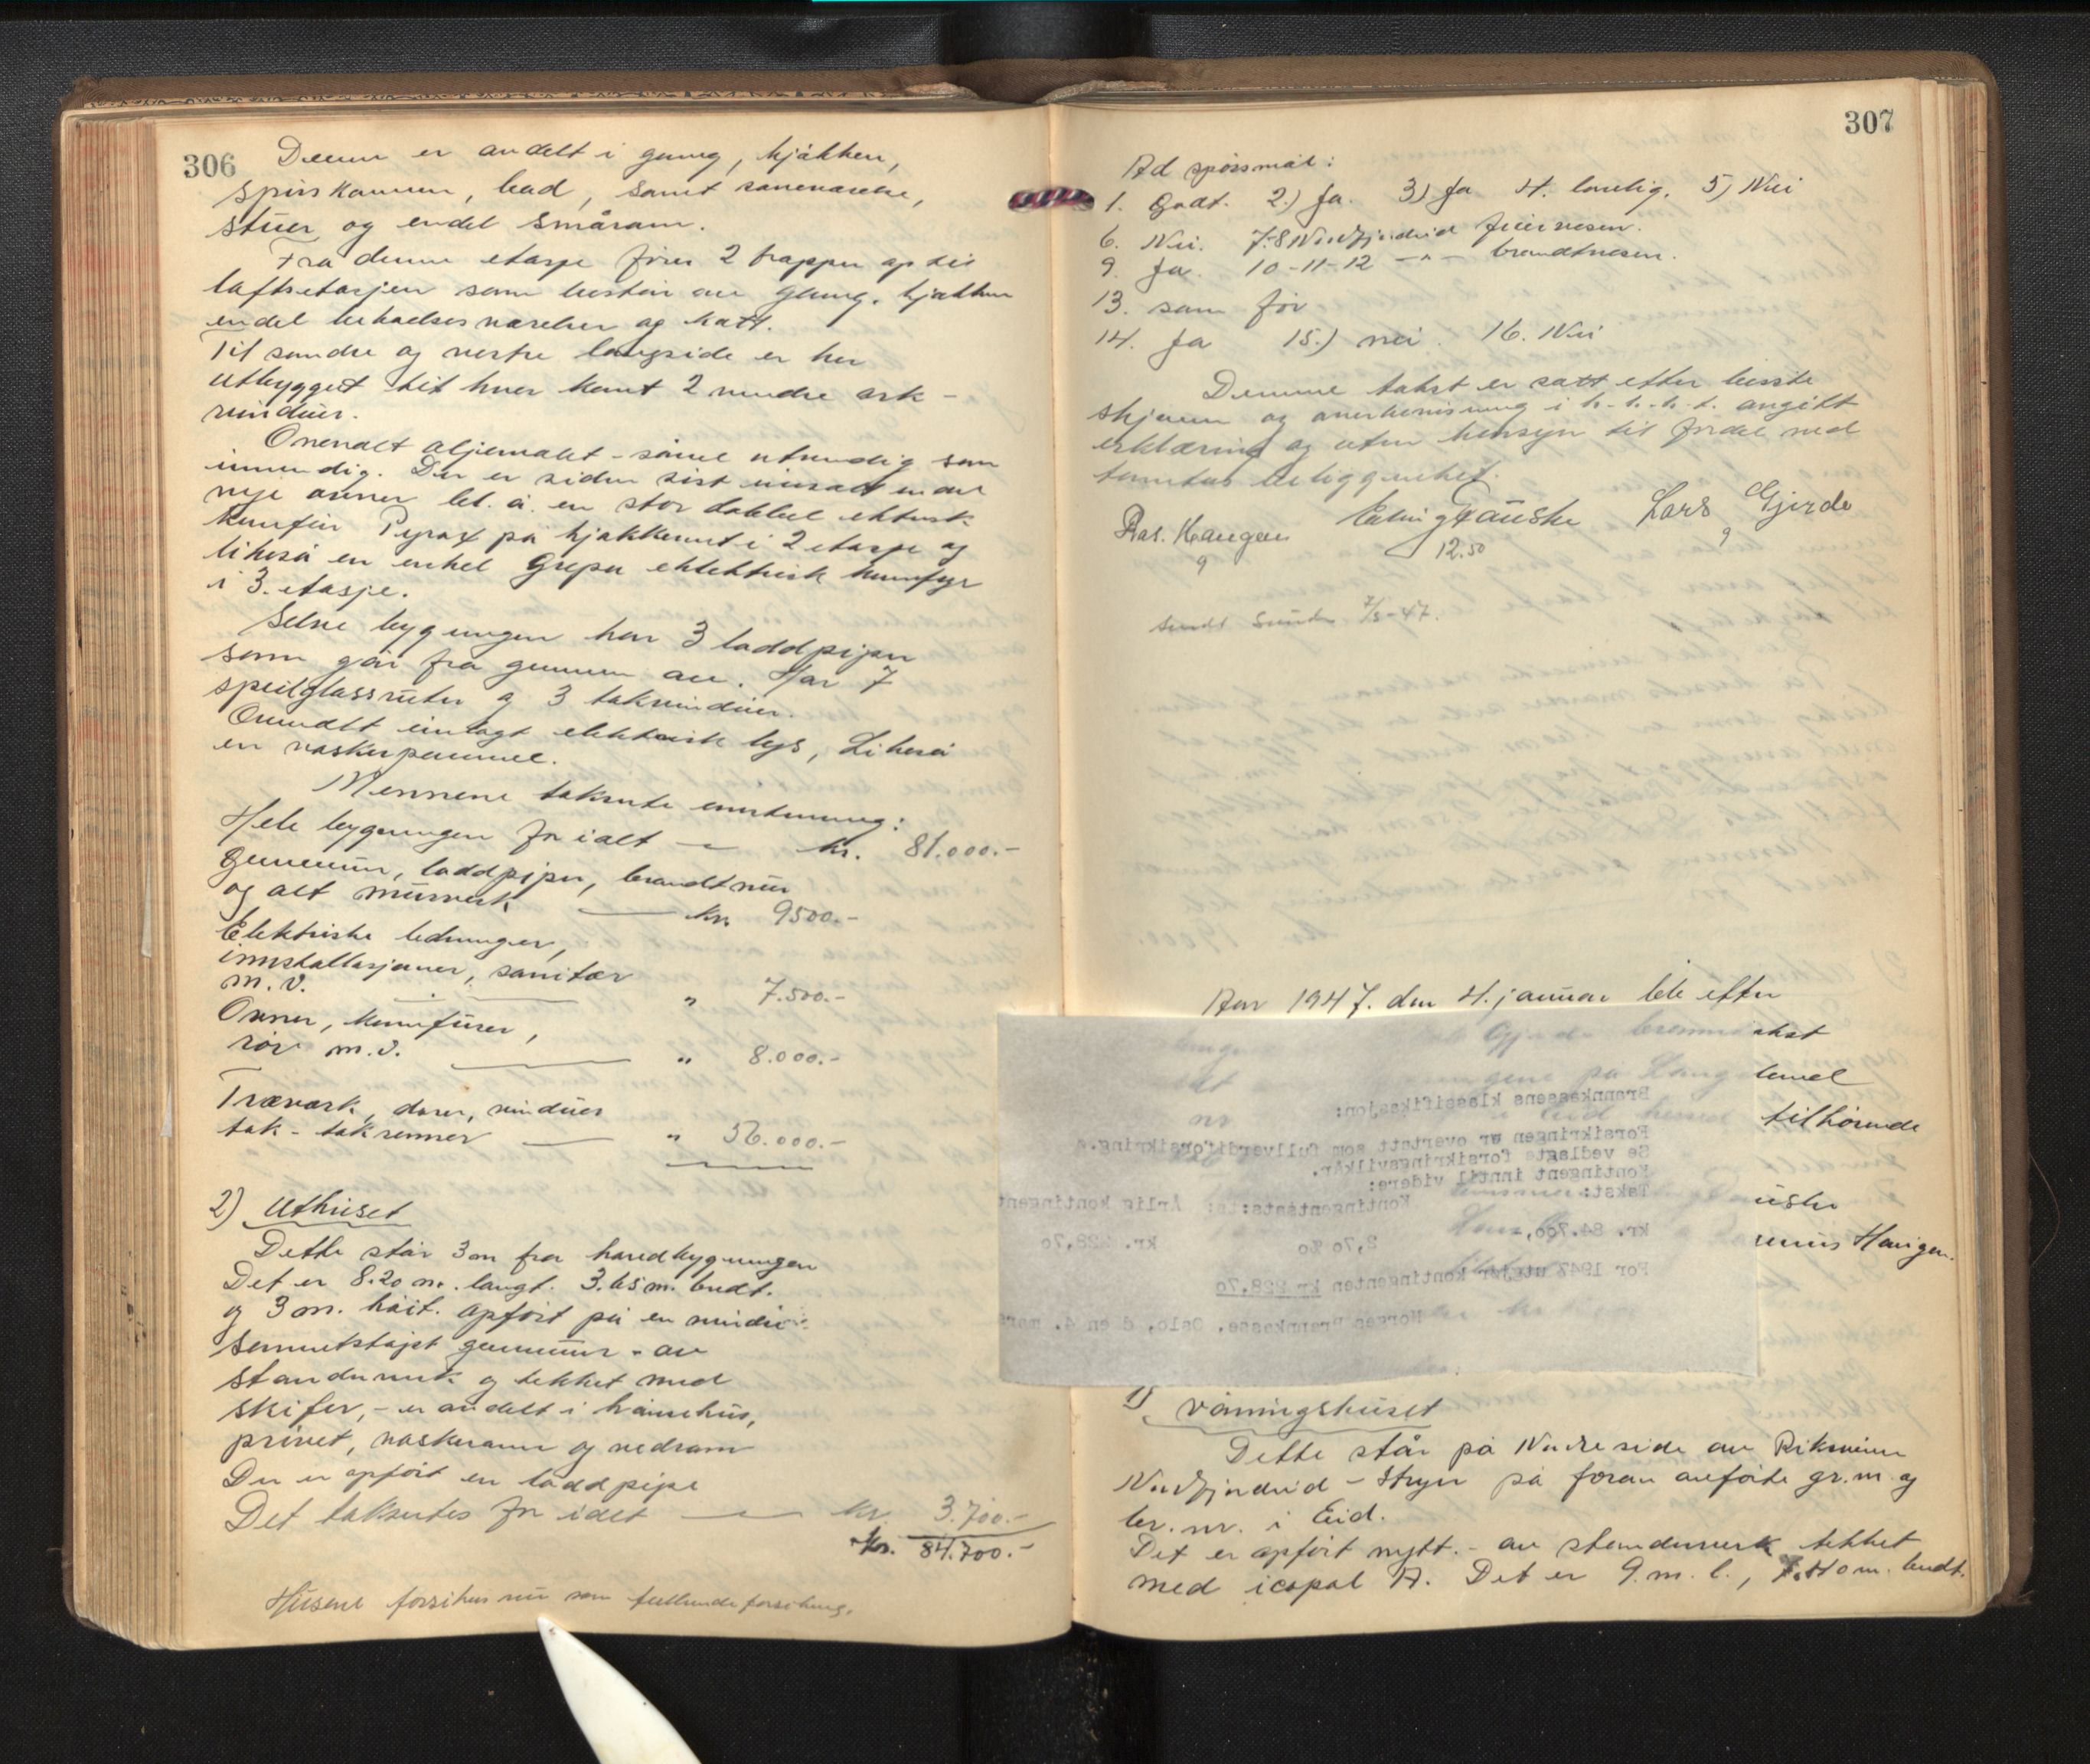 306
Denne er avdelt i gang, kjøkken,
spisskammer, bad, samt soveværelse,
stuer og endel smårom.
Fra denne etasje fører 2 trapper op til
loftsetasjen som består av gang, kjøkken
endel beboelsesværelser og kott.
Til søndre og vestre langside er her
utbygget til hver kant 2 mindre ark-
vinduer.
Overalt oljemalt - såvel utvendig som
innvendig. Der er siden sist innsatt endel
nye ovner bl. a. en stor dobbel elektrisk
komfür Pyrox på kjøkkenet i 2 etasje og
likeså en enkel Grepa elektrisk komfyr
i 3. etasje.
Selve bygningen har 3 loddpiper
som går fra grunnen av. Har 7
speilglassruter og 3 takvinduer.
Overalt innlagt elektrisk lys, Likeså
en vaskepanne.
Mennene takserte enstemmig:
Hele bygningen for ialt — kr. 81.000.-
Grunnmur, loddpiper, brandtmur
og alt murverk — kr. 9500.-
Elektriske ledninger,
innstallasjoner, sanitær
m.v. — " 7.500.-
Ovner, komfürer,
rör m.v. — " 8.000.-
Træverk, dører, vinduer
tak - takrenner — " 56.000.-
2) Uthuset
Dette står 3 m fra hovedbygningen
Det er 8.20 m. langt. 3.65 m. bredt.
og 3 m. høit. Opført på en mindre
sementstøpt grunnmur - av
standerverk og tekket med
skifer, - er avdelt i hønsehus,
privet, vaskerom og vedrom
Der er opført en loddpipe
Det takseres for ialt — kr. 3.700.-
kr. 84.700.-
Husene forsikres nu som fullverdiforsikring.
307
Ad spørsmål:
1. Godt. 2.) Ja. 3) Ja 4. lovlig. 5) Nei
6. Nei. 7-8 Nordfjordeid feiervesen.
9. Ja. 10-11-12 -"- brandtvesen.
13. som før
14. Ja 15.) nei. 16. Nei
Denne takst er satt efter beste
skjønn og overbevisning i h.h.t. angitt
erklæring og uten hensyn til fordel ved
tomtens beliggenhet.
Ras. Haugen Erling Fauske Lars Gjerde
9 12.50 9
sendt Sunde 7/3-47.
Aar 1947. den 4. januar ble efter
Gjerde brann akst
gene på Lang bruel
nr i Eid herred tilhørende
uske
Lars mus Haugen.
Brannkassens klassifikasjon:
Forsikringen er overtatt som fullverdiforsikring.
Se vedlagte forsikringsvilkår.
Kontingent inntil videre:
Takst: Kontingentsats: Årlig kontingent
kr. 84.700, 2,70 ‰ kr. 228,70
For 1947 utgjør kontingenten kr 228,70
Norges Brannkasse, Oslo, den 4. mars
1) Våningshuset
Dette står på Nordre side av Riksveien
Nordfjordeid - Stryn på foran anførte gr.nr. og
br. nr. i Eid.
Det er opført nytt. - av stenderverk tekket
med icopal A. Det er 9. m. l., 7.40 m. bredt.